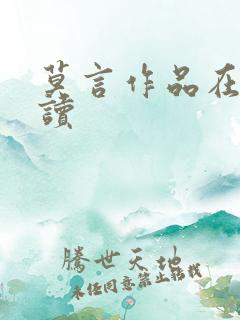 莫言作品在
讀
騰世天地
未经同意禁止转载